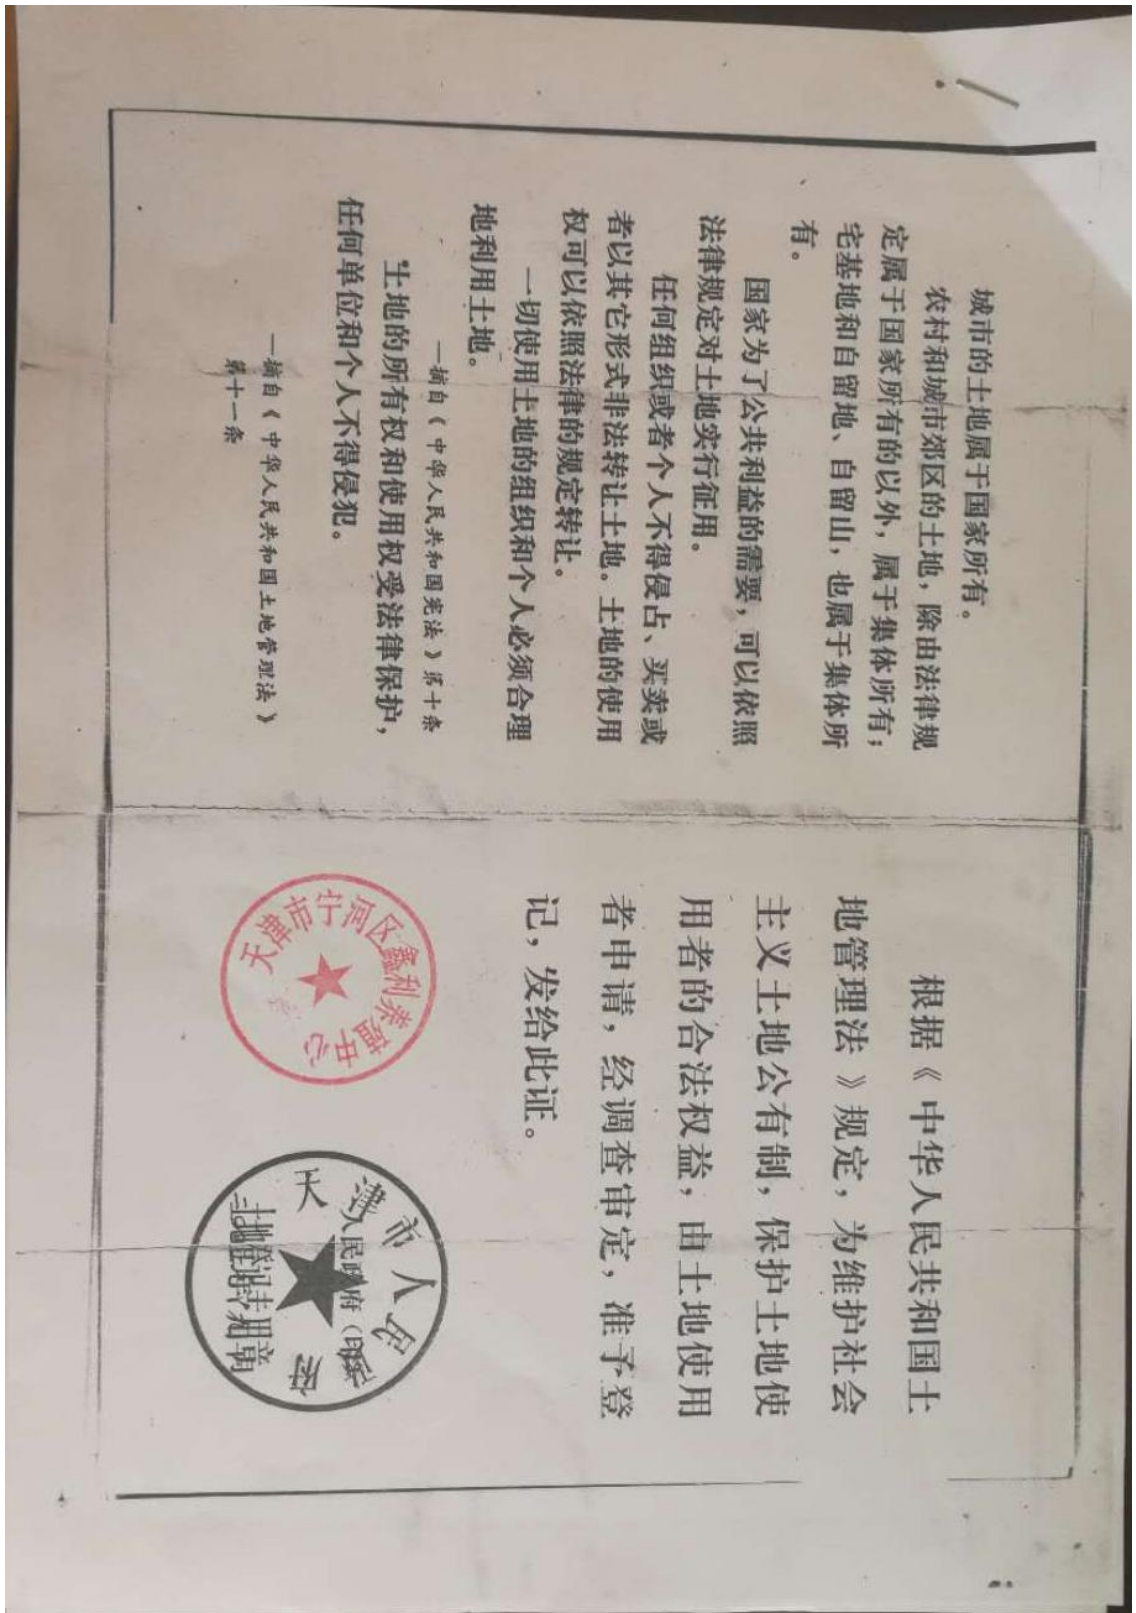 城市的土地属于国家所有。
农村和城市郊区的土地，除由法律规
定属于国家所有的以外，属于集体所有；
宅基地和自留地、自留山，也属于集体所
有。
国家为了公共利益的需要，可以依照
法律规定对土地实行征用。
任何组织或者个人不得侵占、买卖或
者以其它形式非法转让土地。土地的使用
权可以依照法律的规定转让。
一切使用土地的组织和个人必须合理
地利用土地。
—摘自《中华人民共和国宪法》第十条
土地的所有权和使用权受法律保护，
任何单位和个人不得侵犯。
—摘自《中华人民共和国土地管理法》
第十一条
根据《中华人民共和国土
地管理法》规定，为维护社会
主义土地公有制，保护土地使
用者的合法权益，由土地使用
者申请，经调查审定，准予登
记，发给此证。
天津市宁河区鑫利养殖中心
天津市人民政府
人民政府（印章）
土地登记专用章